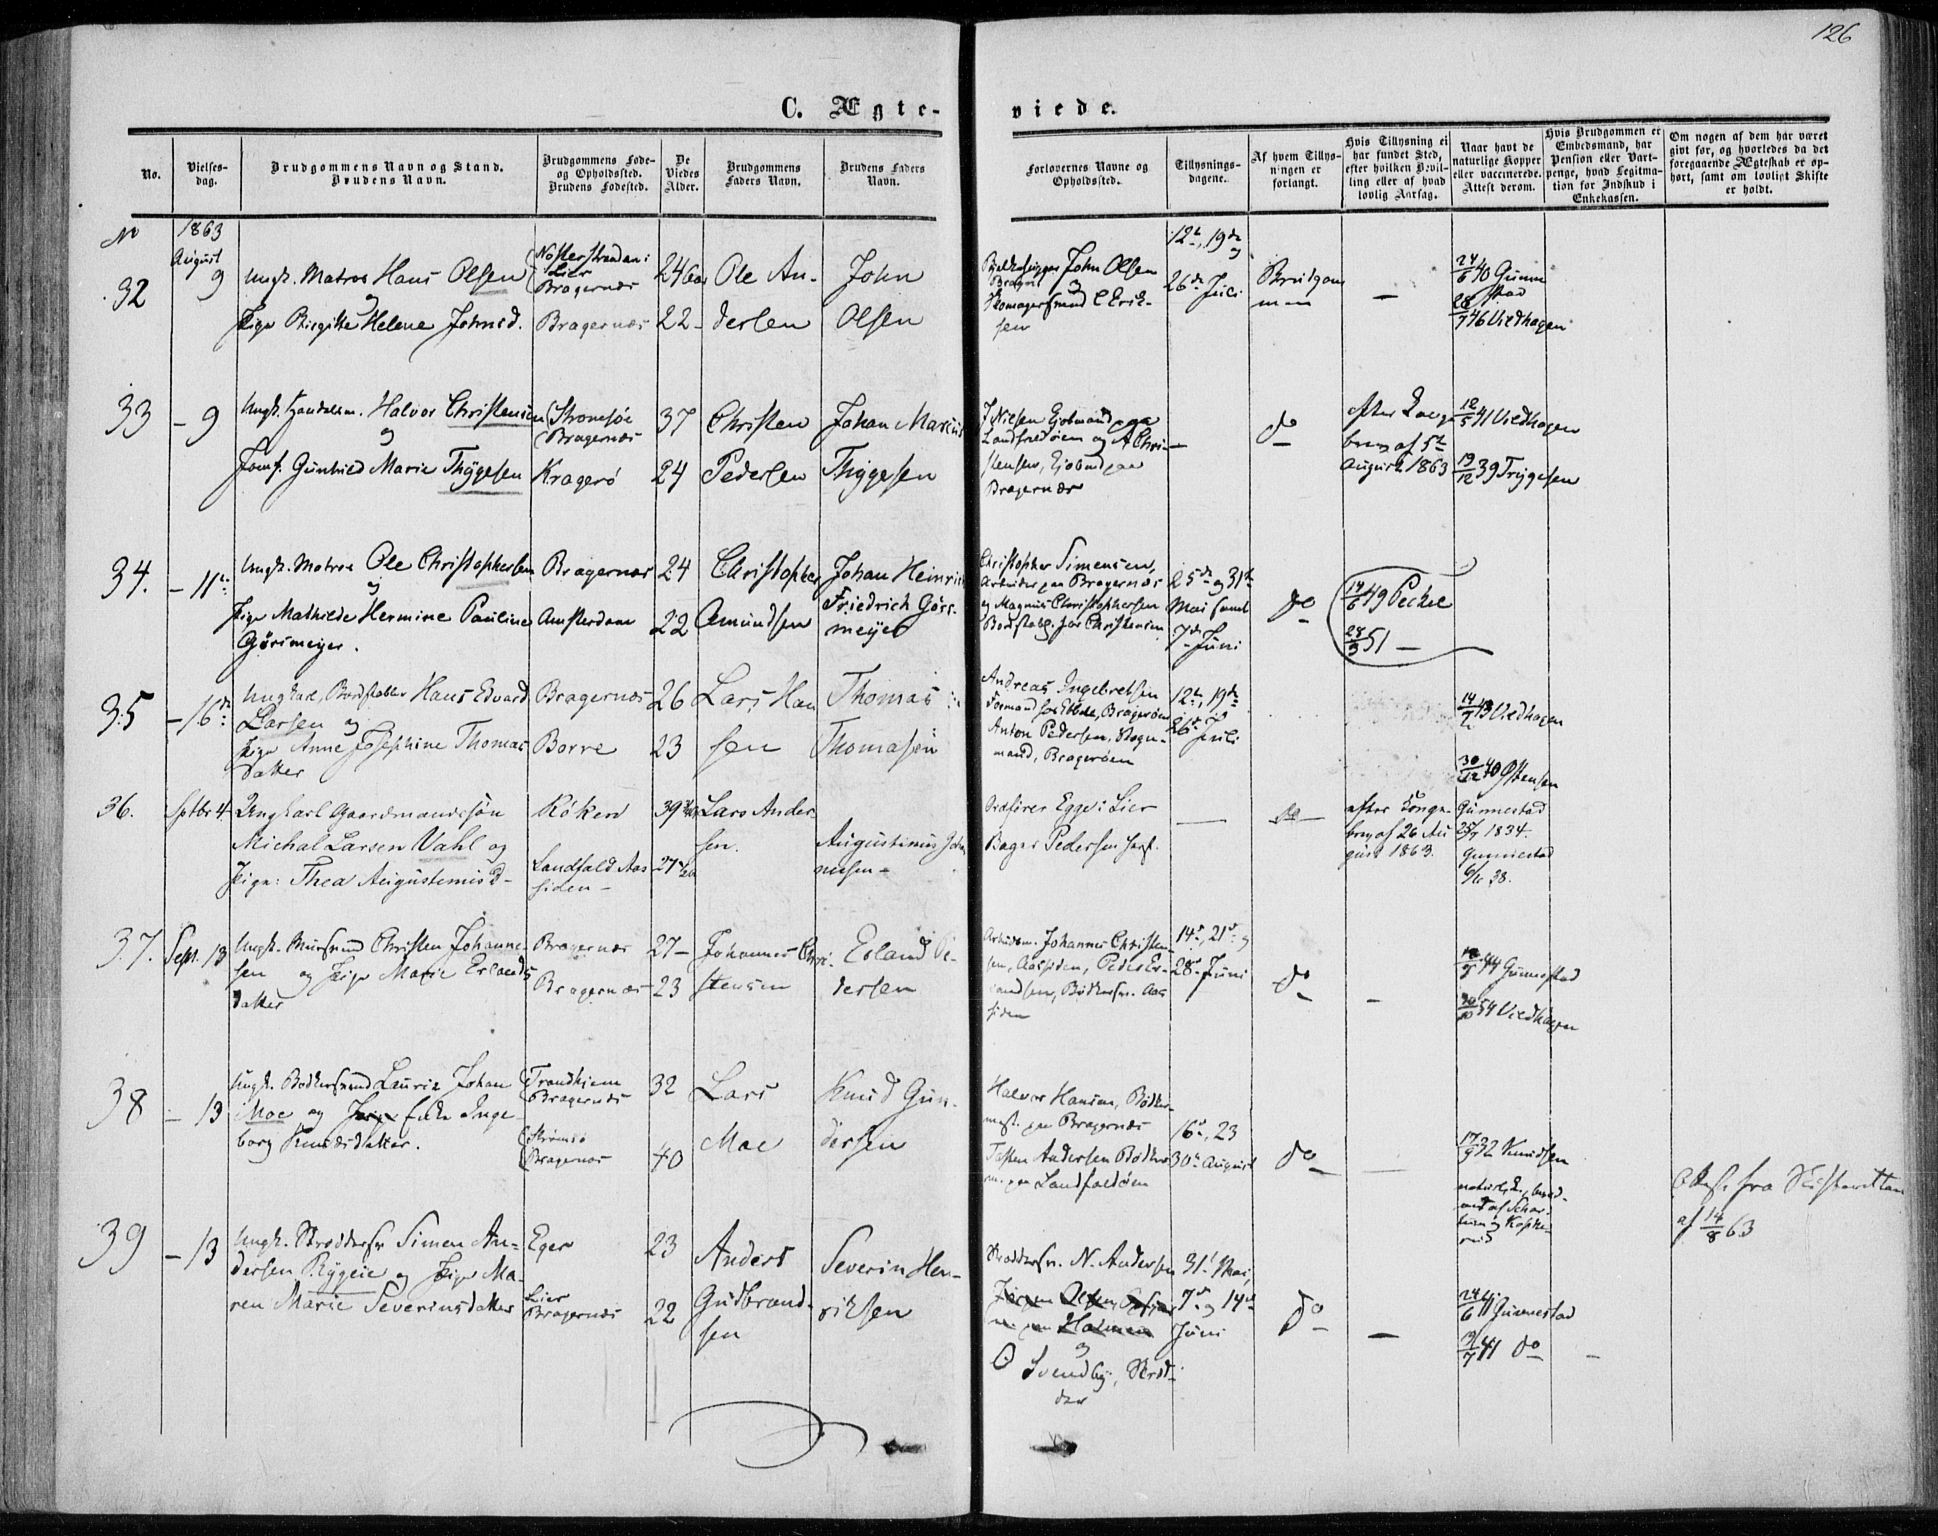 126
C. Ægte-
viede.
No.
Vielses-
dag.
Brudgommens Navn og Stand.
Brudens Navn.
Brudgommens Føde-
og Opholdssted.
Brudens Fødested.
De
Viedes
Alder.
Brudgommens
Faders Navn.
Brudens Faders
Navn.
Forlovernes Navne og
Opholdssted.
Tillysnings-
dagene.
Af hvem Tillys-
ningen er
forlangt.
Hvis Tillysning ei
har fundet Sted,
efter hvilken Bevil-
ling eller af hvad
lovlig Aarsag.
Naar havt de
naturlige Kopper
eller vaccinerede.
Attest derom.
Hvis Brudgommen er
Embedsmand, har
Pension eller Vart-
penge, hvad Legitima-
tion for Indskud i
Enkekassen.
Om nogen af dem har været
givt før, og hvorledes da det
foregaaende Ægteskab er op-
hørt, samt om lovligt Skifte
er holdt.
No
1863
August
32
9
Ungk. Matros Hans Olsen
og
Pige Birgitte Helene Johnsd.
Lier
Bragernæs
Bragernæs
24
22
Ole An-
dersen
John
Olsen
John Olsen
og
Skomagersvend C Erik-
sen
12te, 19de
og
26de Juli
Brudgom
men
—
24/6 40 Gunne
stad
28/7 46 Viedhagen
33
- 9
Ungk. Handelsm. Halvor Christensen
og
Jomf. Gunhild Marie Thygesen
Strømsøe
Bragernæs
Kragerø
37
24
Christen
Pedersen
Johan Marius
Thygesen
J Nielsen Kjøbmand paa
Landfaldøen og A Chri-
stensen, Kjøbmd paa
Bragernæs
—
do
efter Konge-
brev af 5te
August 1863
12/5 41 Viedhagen
19/12 39 Trygesen
34.
- 11te
Ungk. Matros Ole Christophersen
og
Pige Mathilde Hermine Pauline
Görsmeyer.
Bragernæs
Amsterdam
24
22
Christopher
Amundsen
Johan Heinrich
Friedrich Görs-
meyer
Christopher Simensen,
Arbeider paa Bragernæs
og Magnus Christophersen
25de og 31te
Mai samt
7de Juni
do
14/6 49 Peckel
28/3 51 —
35
- 16de
Ungkarl, Bordstabler Hans Edvard
Larsen og
Pige Anne Josephine Thomas
datter
Bragernæs
Borre
26
23
Lars Han
sen
Thomas
Thomasen
Andreas Ingebretsen
Anton Pedersen, Vogn-
mand, Bragerøen
12te, 19de
26de Juli
14/2 43 Viedhagen
30/12 40 Østensen
36.
Sptbr 4
Ungkarl Gaardmandssøn
Michal Larsen Vahl og
Pige: Thea Augustinusd-
Røken
Landfald Aas
siden-
39
27
Lars Ander
sen.
Augustinus Johan
nesen-
Ordfører Egge i Lier
Bager Pedersen
—
do
efter Konge-
brev af 26 Au
gust 1863.
Gunnestad
1834.
Gunnestad
38.
37.
Sept. 13
Ungk. Mursvend Christen Johanne-
sen og Pige Marie Erlands
datter
Bragernæs
Bragernæs
27-
23
Johannes Chri-
stensen
Erland Pe-
dersen
Arbeidsm. Johannes Christen-
sen, Aassiden, Peder Er-
landsen, Bødkersv. Aas
siden
14de, 21de og
28de Juni
do
—
44 Gunnestad
54 Viedhagen
38
- 13
Ungk. Bødkersvend Lauriz Johan
Moe og Enke Inge
borg Knudsdatter.
Trondhjem
Bragernæs
Strømsø
Bragernæs
32
40
Lars
Moe
Knud Gun-
dersen
Halvor Hansen, Bødker-
mest. paa Bragernæs
Tosten Andersen Bødker
m. paa Landfaldøen
16de, 23
30te August
do
—
17/9 32 Knudsen
Attest fra Skifteretten
af 14/8 63
39
- 13
Ungk. Skræddersv Simen An-
dersen Rygeie og Pige Ma-
ren Marie Severinsdatter
Eger
Lier
Bragernæs
23
22
Anders
Gudbrand-
sen
Severin Hen-
riksen
Skræddersv. N. Andersen
Jørgen Olsen
m. paa Holmen
og
O Svendby, Skræd-
der
31te Mai,
7de og 14de
Juni
do
—
24/6 41 Gunnestad
9/7 41 do
—